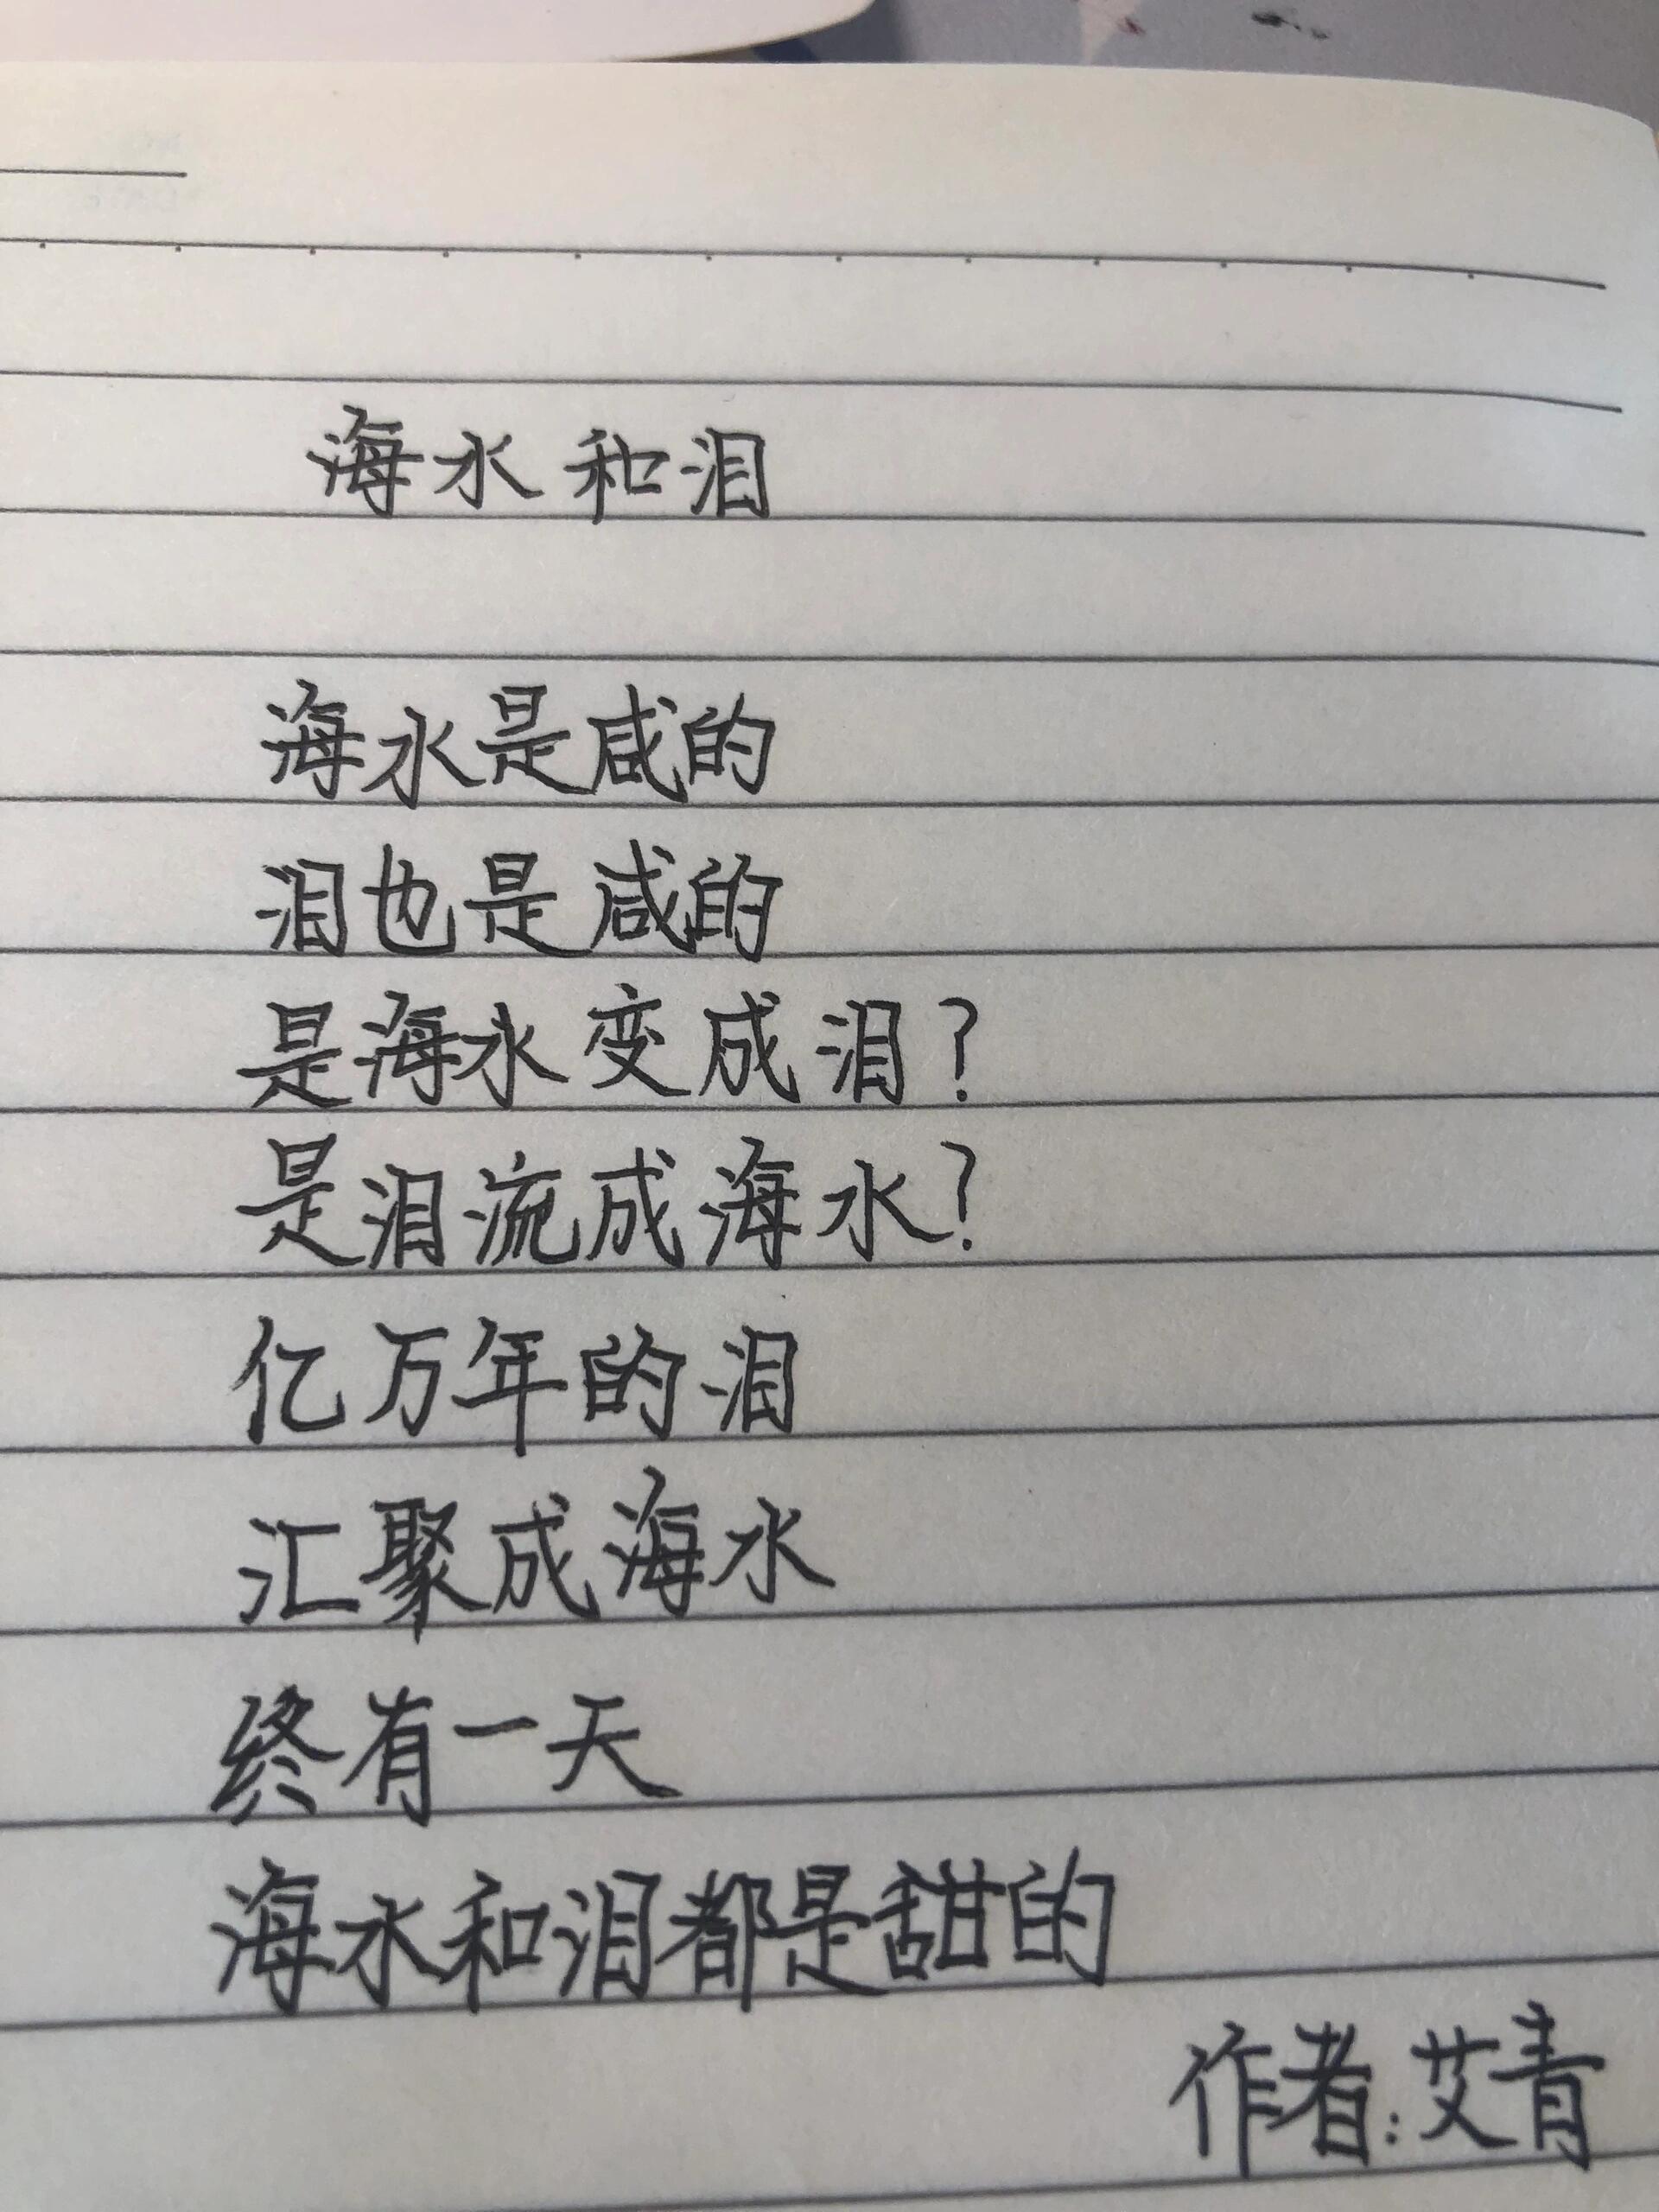 海水和泪
海水是咸的
泪也是咸的
是海水变成泪?
是泪流成海水?
亿万年的泪
汇聚成海水
终有一天
海水和泪都是甜的
作者:艾青